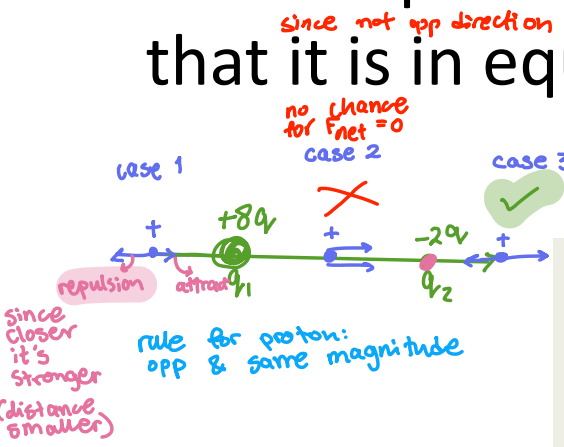 since not opp direction
that it is in eq
no chance
for Fnet = 0
case 1
case 2
case 3
+
+8q
+
-2q
+
repulsion
attract
q1
q2
since
closer
it's
stronger
(distance
smaller)
rule for proton:
opp & same magnitude